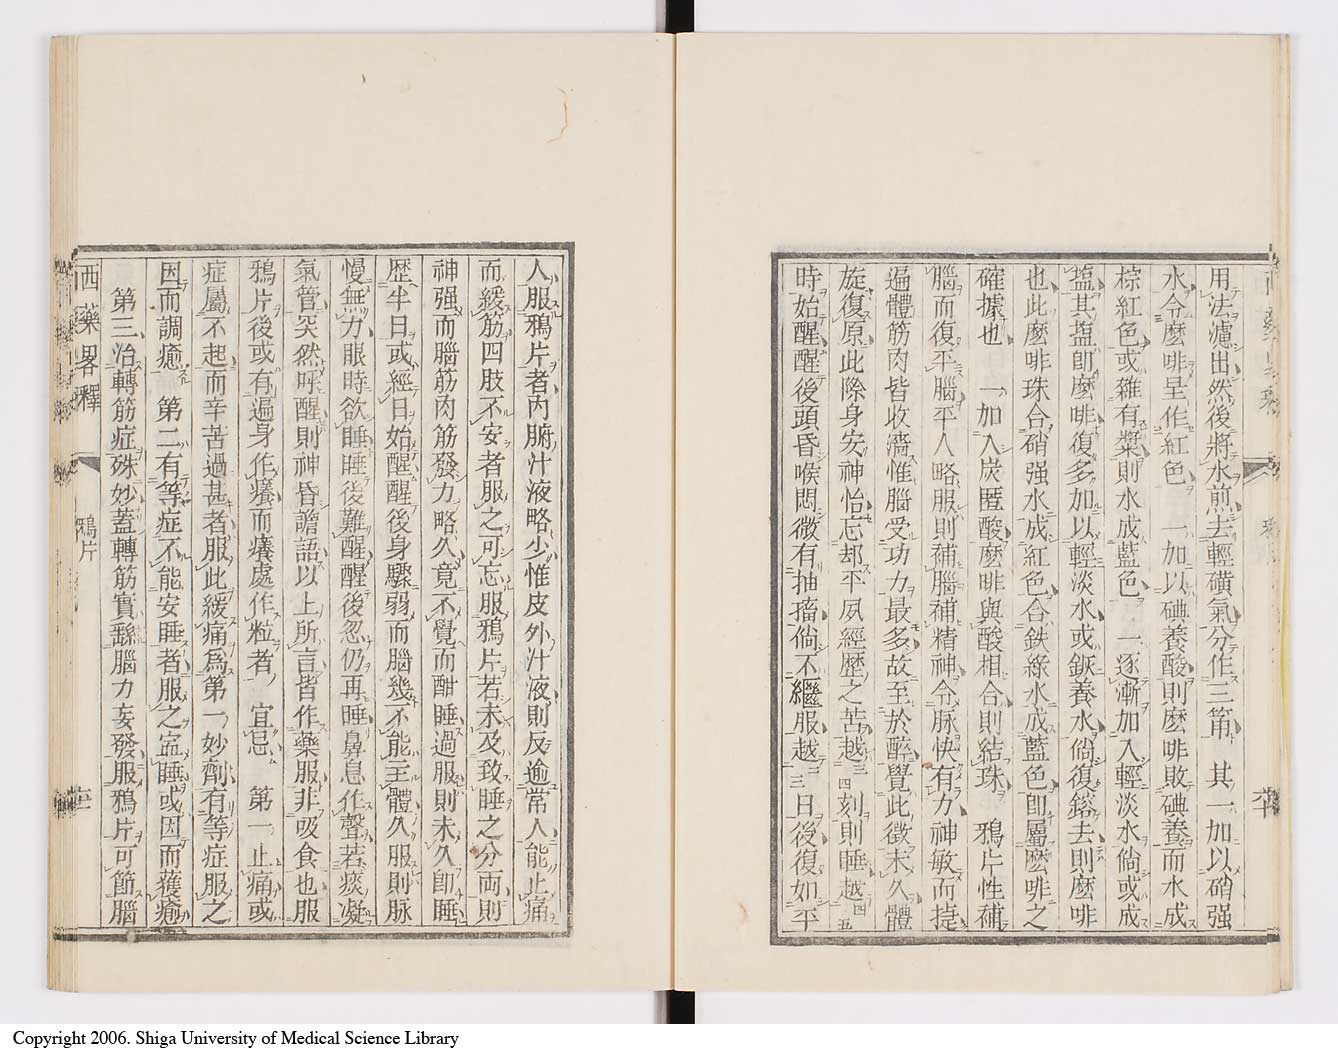 用法濾出然後將水煎去輕磺氣分作三筩 其一加以硝强
水令麽啡呈作紅色 一加以碘養酸則麽啡敗碘養而水成
棕紅色或雜有漿則水成藍色 一逐漸加入輕淡水倘或成
塩其塩卽麽啡復多加以輕淡水或鈲養水倘復鎔去則麽啡
也此麽啡珠合硝强水成紅色合鉄綠水成藍色卽屬麽啡之
確據也 一加入炭匿酸麽啡與酸相合則結珠 鴉片性補
腦而復平腦平人略服則補腦補精神令脉快有力神敏而㨗
遍體筋肉皆收濇惟腦受功力最多故至於醉覺此徵末久體
旋復原此際身安神怡忘却平夙經歷之苦越三四刻則睡越四五
時始醒醒後頭昏喉悶微有抽搐倘不繼服越二三日後復如平
人服鴉片者內腑汁液略少惟皮外汁液則反逾常人能止痛
而緩筋四肢不安者服之可忘服鴉片若未及致睡之分両則
神强而腦筋肉筋發力略久竟不覺而酣睡過服則未久卽睡
歷半日或經日始醒醒後身驟弱而腦幾不能主體久服則脉
慢無力眼時欲睡睡後難醒醒後忽仍再睡鼻息作聲若痰凝
氣管突然呼醒則神昏譫語以上所言皆作藥服非吸食也服
鴉片後或有遍身作癢而癢處作粒者 宜忌 第一止痛或
症屬不起而辛苦過甚者服此緩痛爲第一妙劑有等症服之
因而調癒 第二有等症不能安睡者服之寍睡或因而獲癒
第三治轉筋症殊妙蓋轉筋實繇腦力妄發服鴉片可節腦
西藥畧釋
鴉片